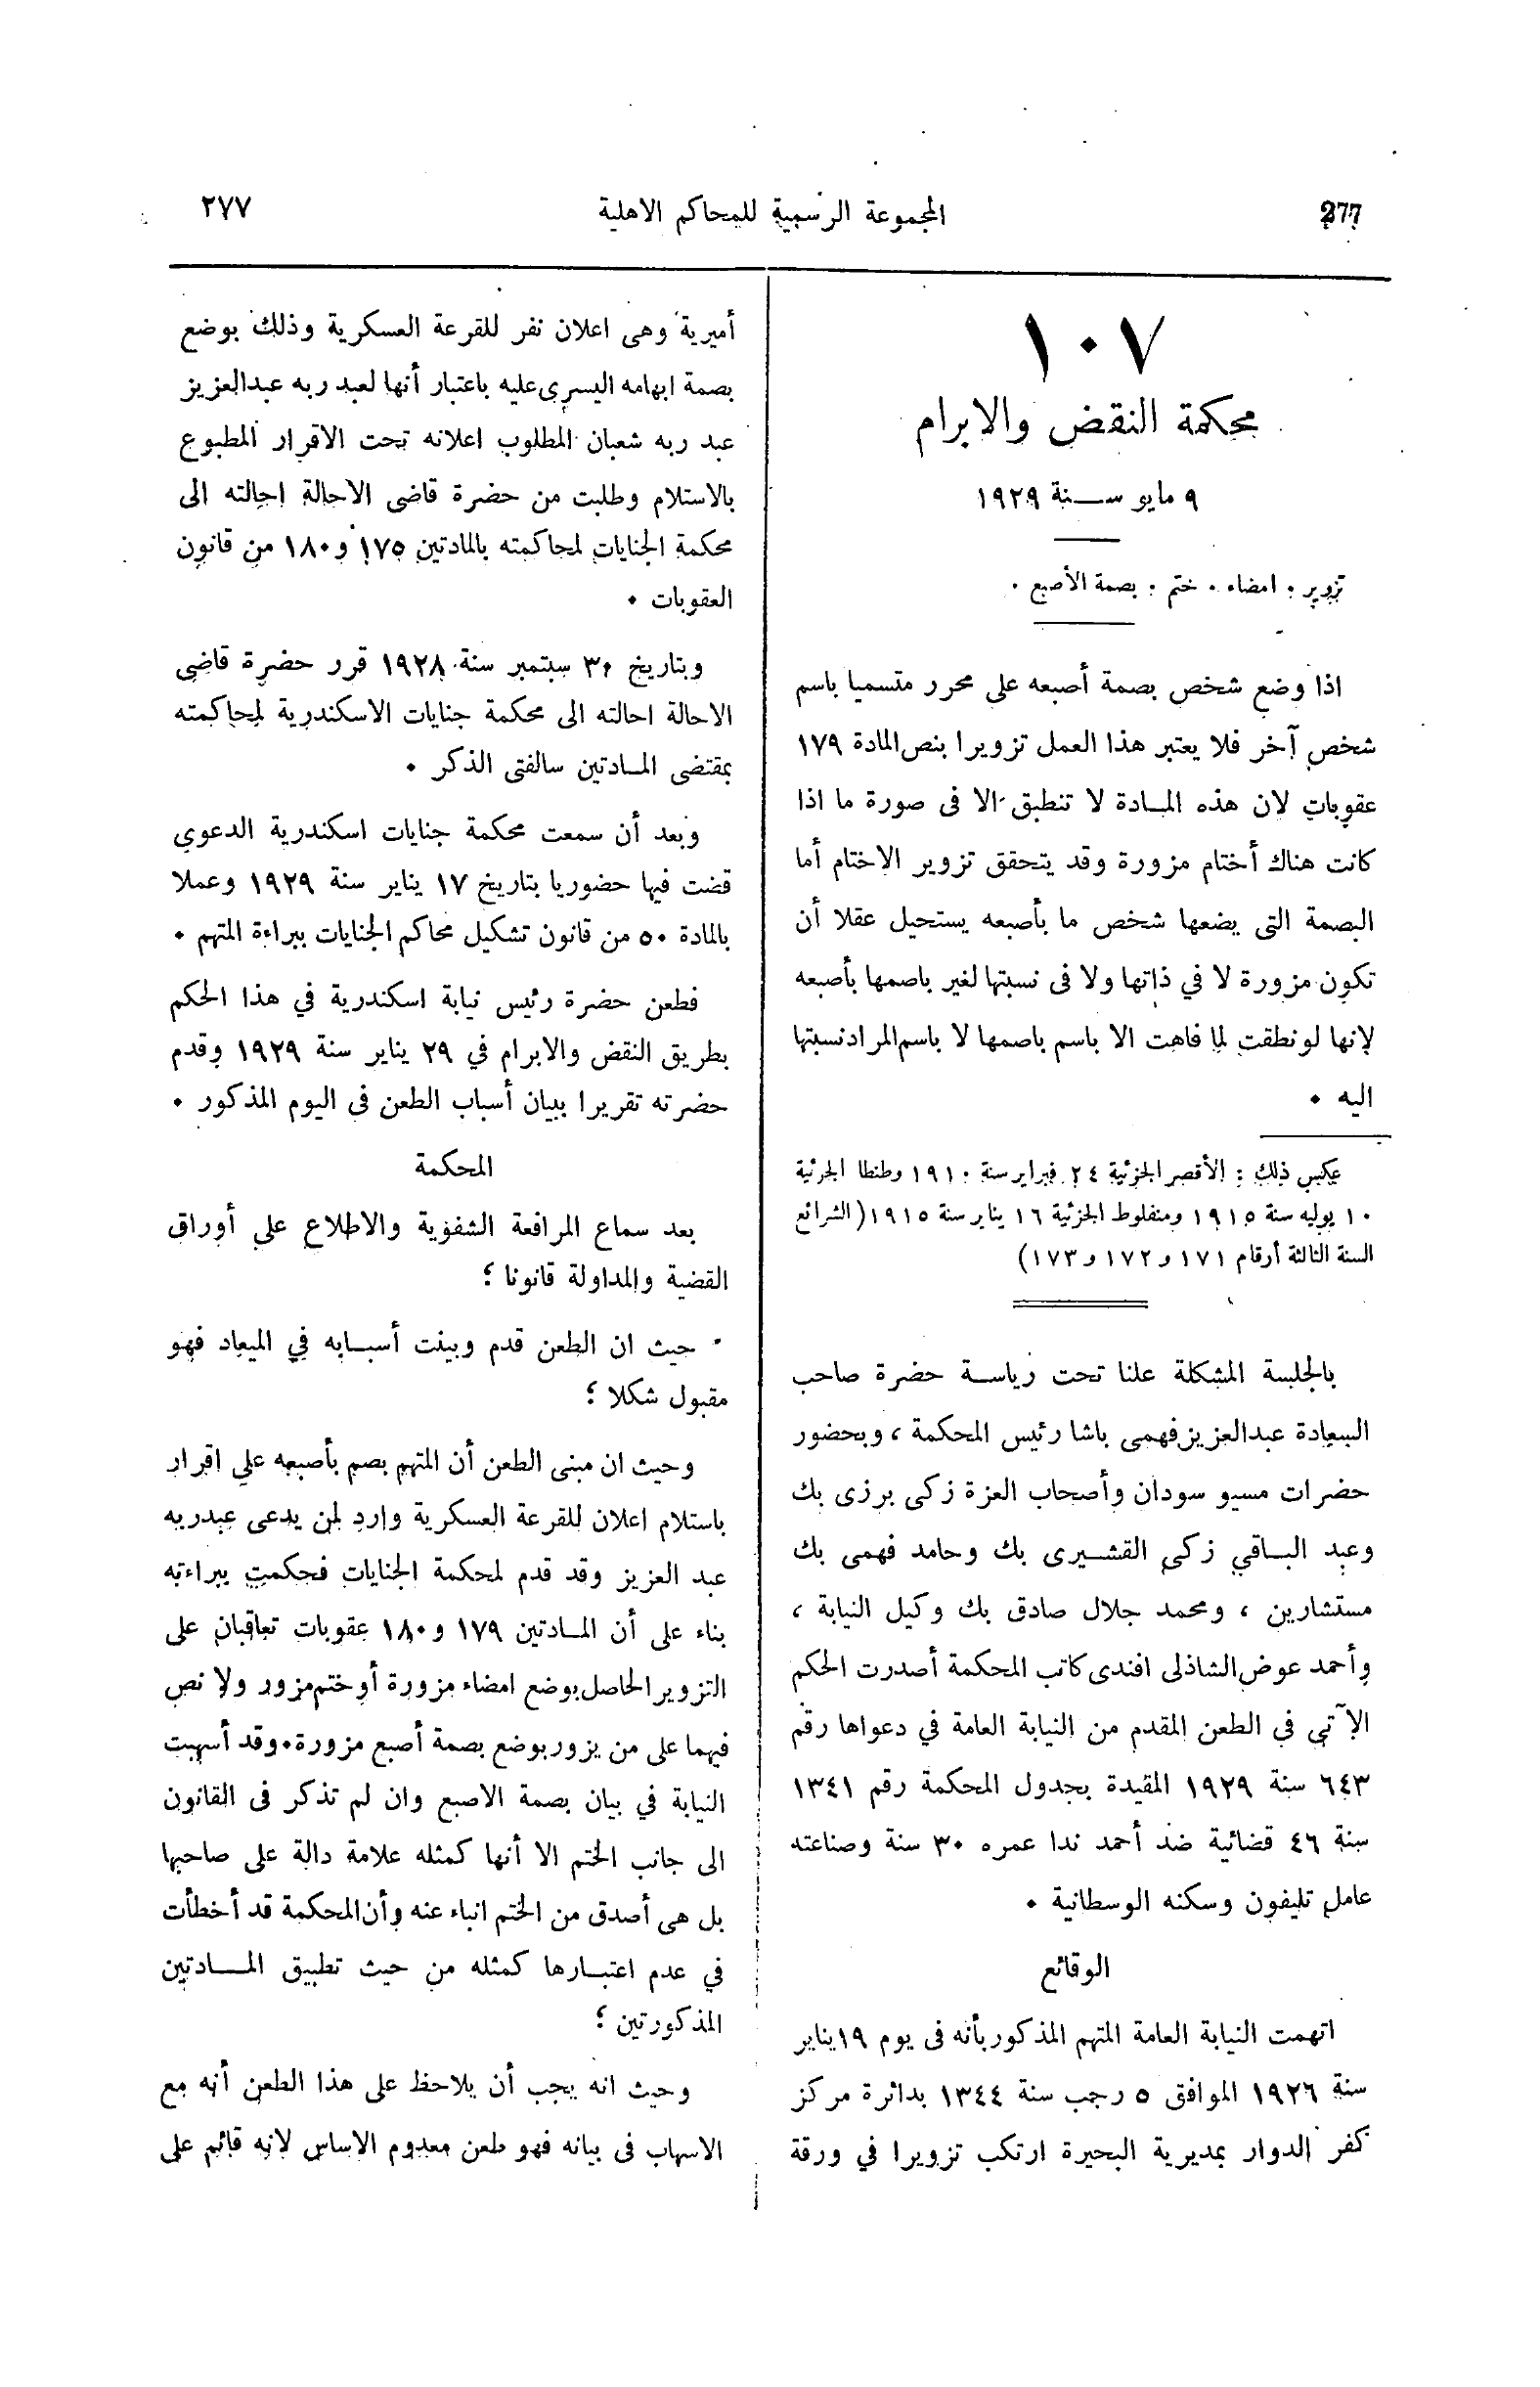 277
المجموعة الرسمية للمحاكم الاهلية
٢٧٧
١٠٧
محكمة النقض والابرام
٩ مايو سنة ١٩٢٩
تزوير . امضاء . ختم . بصمة الأصبع .
اذا وضع شخص بصمة أصبعه على محرر متسميا باسم
شخص آخر فلا يعتبر هذا العمل تزويرا بنص المادة ١٧٩
عقوبات لان هذه المادة لا تنطبق الا فى صورة ما اذا
كانت هناك أختام مزورة وقد يتحقق تزوير الاختام أما
البصمة التى يضعها شخص ما بأصبعه يستحيل عقلا أن
تكون مزورة لا في ذاتها ولا فى نسبتها لغير باصمها بأصبعه
لانها لو نطقت لما فاهت الا باسم باصمها لا باسم المراد نسبتها
اليه .
عكس ذلك : الأقصر الجزئية ٢٤ فبراير سنة ١٩١٠ وطنطا الجزئية
١٠ يوليه سنة ١٩١٥ ومنفلوط الجزئية ١٦ يناير سنة ١٩١٥ (الشرائع
السنة الثالثة أرقام ١٧١ و ١٧٢ و ١٧٣)
بالجلسة المشكلة علنا تحت رياسة حضرة صاحب
السعادة عبد العزيز فهمى باشا رئيس المحكمة ، وبحضور
حضرات مسيو سودان وأصحاب العزة زكى برزى بك
وعبد الباقي زكى القشيرى بك وحامد فهمى بك
مستشارين ، ومحمد جلال صادق بك وكيل النيابة ،
وأحمد عوض الشاذلى افندى كاتب المحكمة أصدرت الحكم
الآتي في الطعن المقدم من النيابة العامة في دعواها رقم
٦٤٣ سنة ١٩٢٩ المقيدة بجدول المحكمة رقم ١٣٤١
سنة ٤٦ قضائية ضد أحمد ندا عمره ٣٠ سنة وصناعته
عامل تليفون وسكنه الوسطانية .
الوقائع
اتهمت النيابة العامة المتهم المذكور بأنه فى يوم ١٩ يناير
سنة ١٩٢٦ الموافق ٥ رجب سنة ١٣٤٤ بدائرة مركز
كفر الدوار بمديرية البحيرة ارتكب تزويرا في ورقة
أميرية وهى اعلان نفر للقرعة العسكرية وذلك بوضع
بصمة ابهامه اليسرى عليه باعتبار أنها لعبد ربه عبد العزيز
عبد ربه شعبان المطلوب اعلانه تحت الاقرار المطبوع
بالاستلام وطلبت من حضرة قاضى الاحالة احالته الى
محكمة الجنايات لمحاكمته بالمادتين ١٧٥ و ١٨٠ من قانون
العقوبات .
وبتاريخ ٣٠ سبتمبر سنة ١٩٢٨ قرر حضرة قاضى
الاحالة احالته الى محكمة جنايات الاسكندرية لمحاكمته
بمقتضى المادتين سالفتى الذكر .
وبعد أن سمعت محكمة جنايات اسكندرية الدعوي
قضت فيها حضوريا بتاريخ ١٧ يناير سنة ١٩٢٩ وعملا
بالمادة ٥٠ من قانون تشكيل محاكم الجنايات ببراءة المتهم .
فطعن حضرة رئيس نيابة اسكندرية في هذا الحكم
بطريق النقض والابرام في ٢٩ يناير سنة ١٩٢٩ وقدم
حضرته تقريرا ببيان أسباب الطعن فى اليوم المذكور .
المحكمة
بعد سماع المرافعة الشفوية والاطلاع على أوراق
القضية والمداولة قانونا ؛
حيث ان الطعن قدم وبينت أسبابه في الميعاد فهو
مقبول شكلا ؛
وحيث ان مبنى الطعن أن المتهم بصم بأصبعه على اقرار
باستلام اعلان للقرعة العسكرية وارد لمن يدعى عبدربه
عبد العزيز وقد قدم لمحكمة الجنايات فحكمت ببراءته
بناء على أن المادتين ١٧٩ و ١٨٠ عقوبات تعاقبان على
التزوير الحاصل بوضع امضاء مزورة أو ختم مزور ولا نص
فيهما على من يزور بوضع بصمة أصبع مزورة . وقد أسهبت
النيابة في بيان بصمة الاصبع وان لم تذكر فى القانون
الى جانب الختم الا أنها كمثله علامة دالة على صاحبها
بل هى أصدق من الختم انباء عنه وأن المحكمة قد أخطأت
في عدم اعتبارها كمثله من حيث تطبيق المادتين
المذكورتين ؛
وحيث انه يجب أن يلاحظ على هذا الطعن أنه مع
الاسهاب فى بيانه فهو طعن معدوم الاساس لانه قائم على